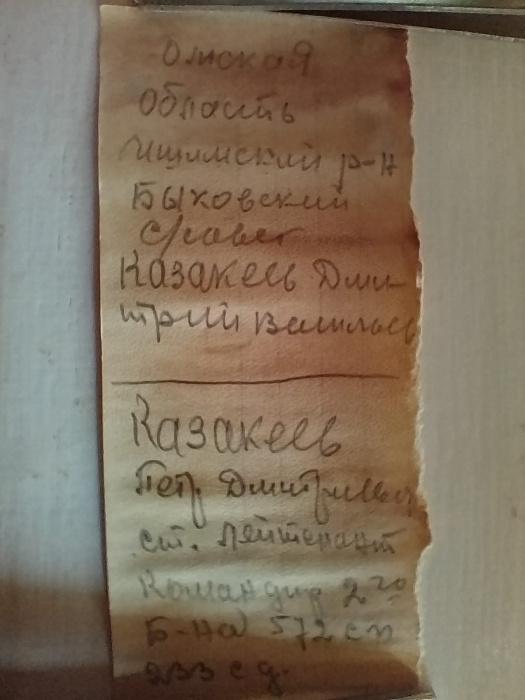 Омская
Область
Ишимский р-н
Быковский
с/совет
Казакеев Дми-
трий Васильев
Казакеев
Петр Дмитриевич
ст. лейтенант
Командир 2го
Б-на 572 сп
233 с д.